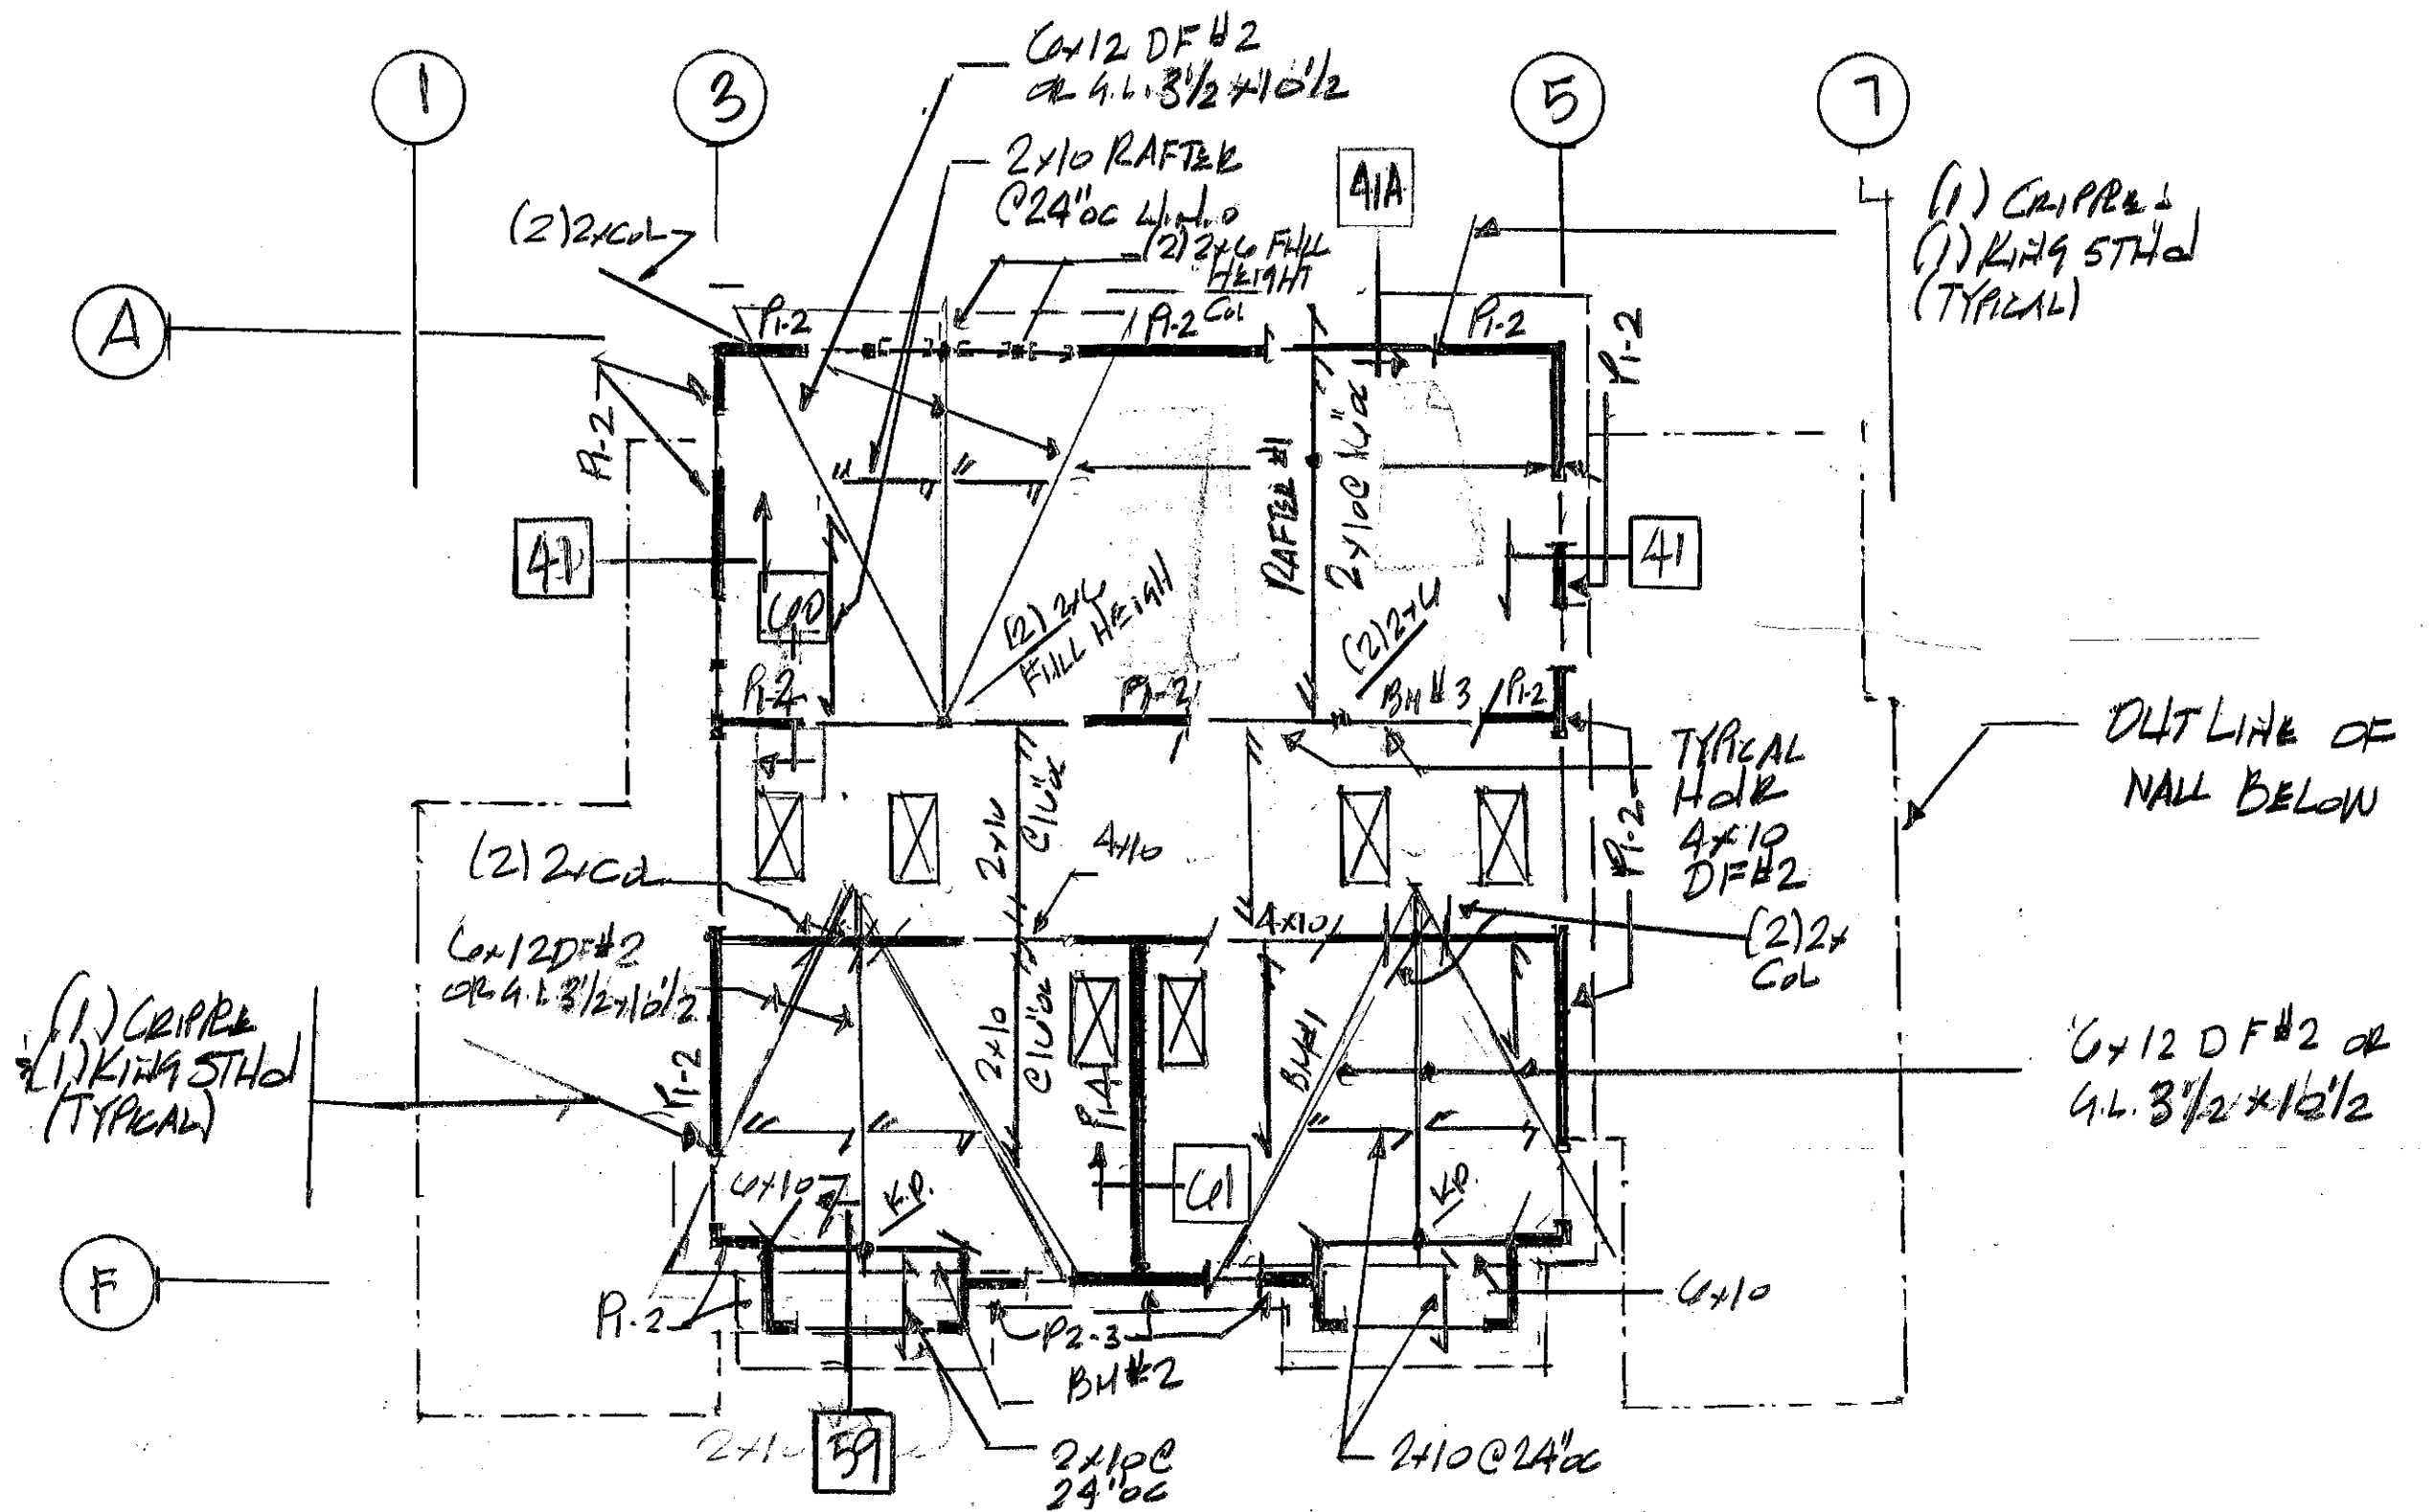 1
3
5
7
A
F
6x12 DF#2
OR G.L. 3 1/2 x 10 1/2
2x10 RAFTER
@24"oc U.N.O
(2) 2x6 FULL
HEIGHT
COL
41A
(1) CRIPPLE &
(1) KING STUD
(TYPICAL)
(2) 2x COL
P1-2
P1-2
P1-2
P1-2
P1-2
RAFTER #1
2x10@16"oc
41
60
(2) 2x6
FULL HEIGH
(2) 2x4
P1-2
P1-2
BM#3
P1-2
TYPICAL
HDR
4x10
DF#2
OUTLINE OF
WALL BELOW
2x10
@16"oc
4x10
(2) 2x COL
P1-2
4x10
(2) 2x
COL
6x12 DF#2
OR G.L 3 1/2 x 10 1/2
(1) CRIPPLE
&(1) KING STUD
(TYPICAL)
P1-2
2x10
@16"oc
P1-4
BM#1
6x12 DF#2 OR
G.L. 3 1/2 x 10 1/2
6x10
K.P.
61
K.P.
P1-2
P2-3
BM#2
6x10
59
2x10@
24"oc
2x10@24"oc